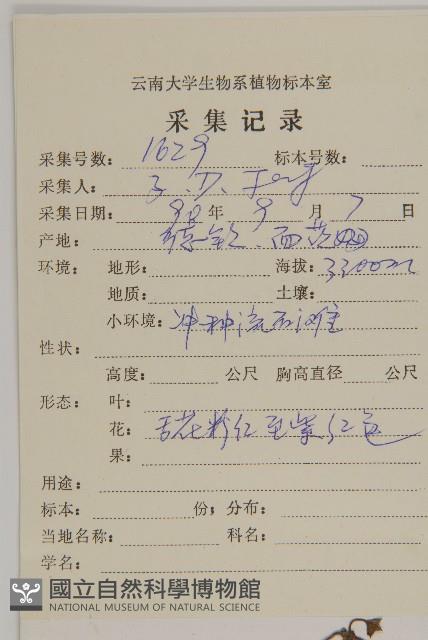 云南大学生物系植物标本室
采集记录
采集号数: 1629 标本号数:
采集人:
采集日期: 98 年 9 月 7 日
产地: 德钦
环境: 地形: 海拔: 3300m
地质: 土壤:
小环境: 冲积流石滩
性状:
高度: 公尺 胸高直径 公尺
形态: 叶:
花: 舌花粉红至紫红色
果:
用途:
标本: 份; 分布:
当地名称: 科名:
学名:
國立自然科學博物館
NATIONAL MUSEUM OF NATURAL SCIENCE